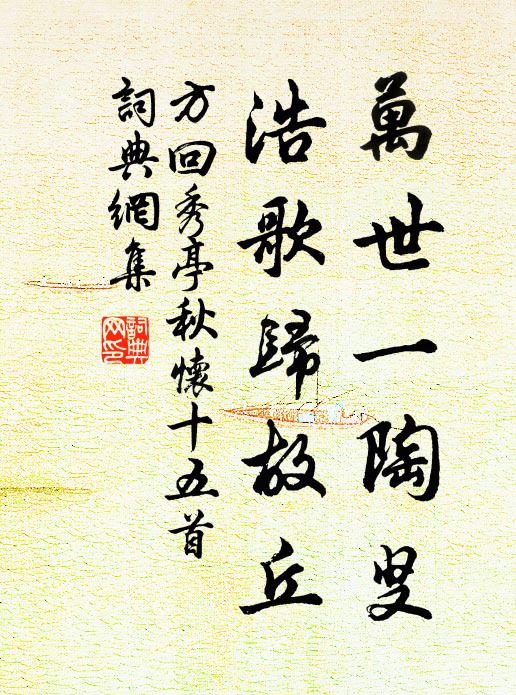 萬世一陶叟
浩歌歸故丘
方回秀亭秋懷十五首
詞典網集
詞典網印